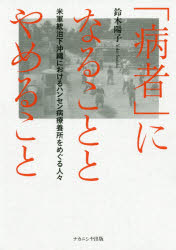 「病者」に
なることと
やめること
米軍統治下沖縄におけるハンセン病療養所をめぐる人々
鈴木陽子
ナカニシヤ出版